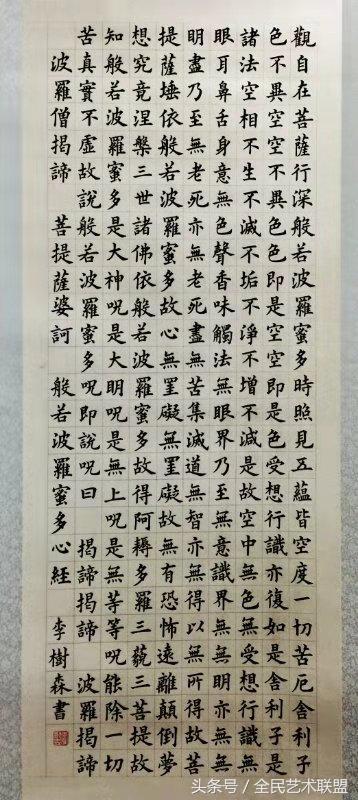 觀自在菩薩行深般若波羅蜜多時照見五蘊皆空度一切苦厄舍利子
色不異空空不異色色即是空空即是色受想行識亦復如是舍利子是
諸法空相不生不滅不垢不淨不增不減是故空中無色無受想行識無
眼耳鼻舌身意無色聲香味觸法無眼界乃至無意識界無無明亦無無
明盡乃至無老死亦無老死盡無苦集滅道無智亦無得以無所得故菩
提薩埵依般若波羅蜜多故心無罣礙無罣礙故無有恐怖遠離顛倒夢
想究竟涅槃三世諸佛依般若波羅蜜多故得阿耨多羅三藐三菩提故
知般若波羅蜜多是大神呪是大明呪是無上呪是無等等呪能除一切
苦真實不虛故說般若波羅蜜多呪即說呪曰 揭諦揭諦 波羅揭諦
波羅僧揭諦 菩提薩婆訶 般若波羅蜜多心経 李樹森書
头条号 / 全民艺术联盟